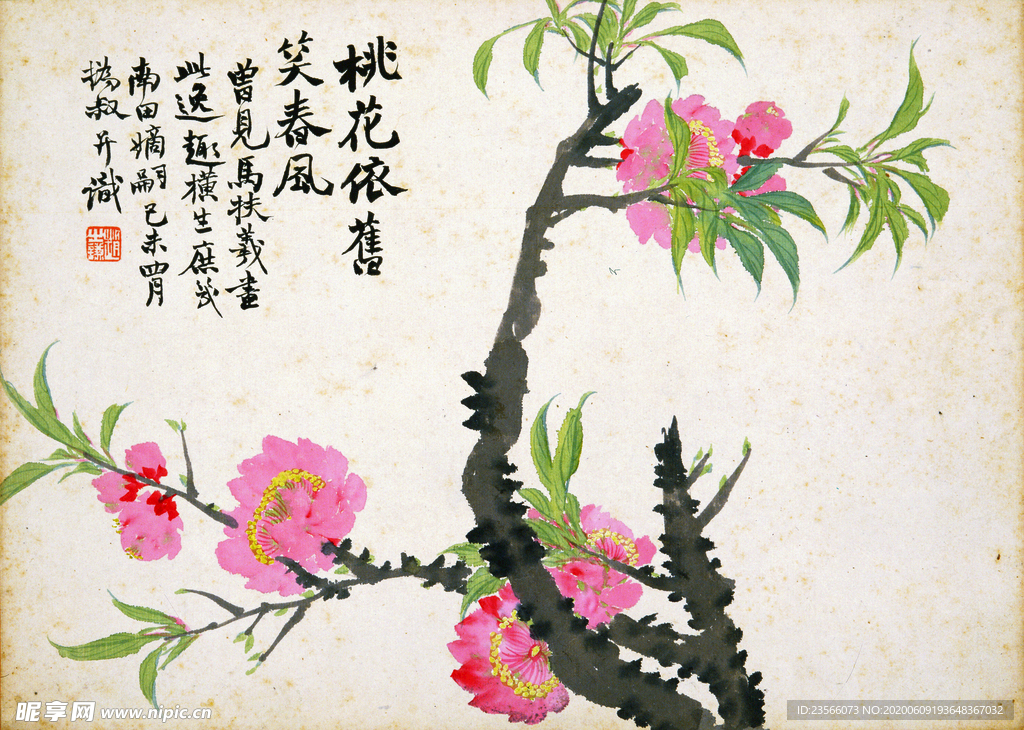 桃花依舊
笑春風
曾見馬扶羲畫
此逸趣橫生庶幾
南田嫡嗣己未四月
撝叔并識
昵享网 www.nipic.cn
ID:23566073 NO:20200609193648367032